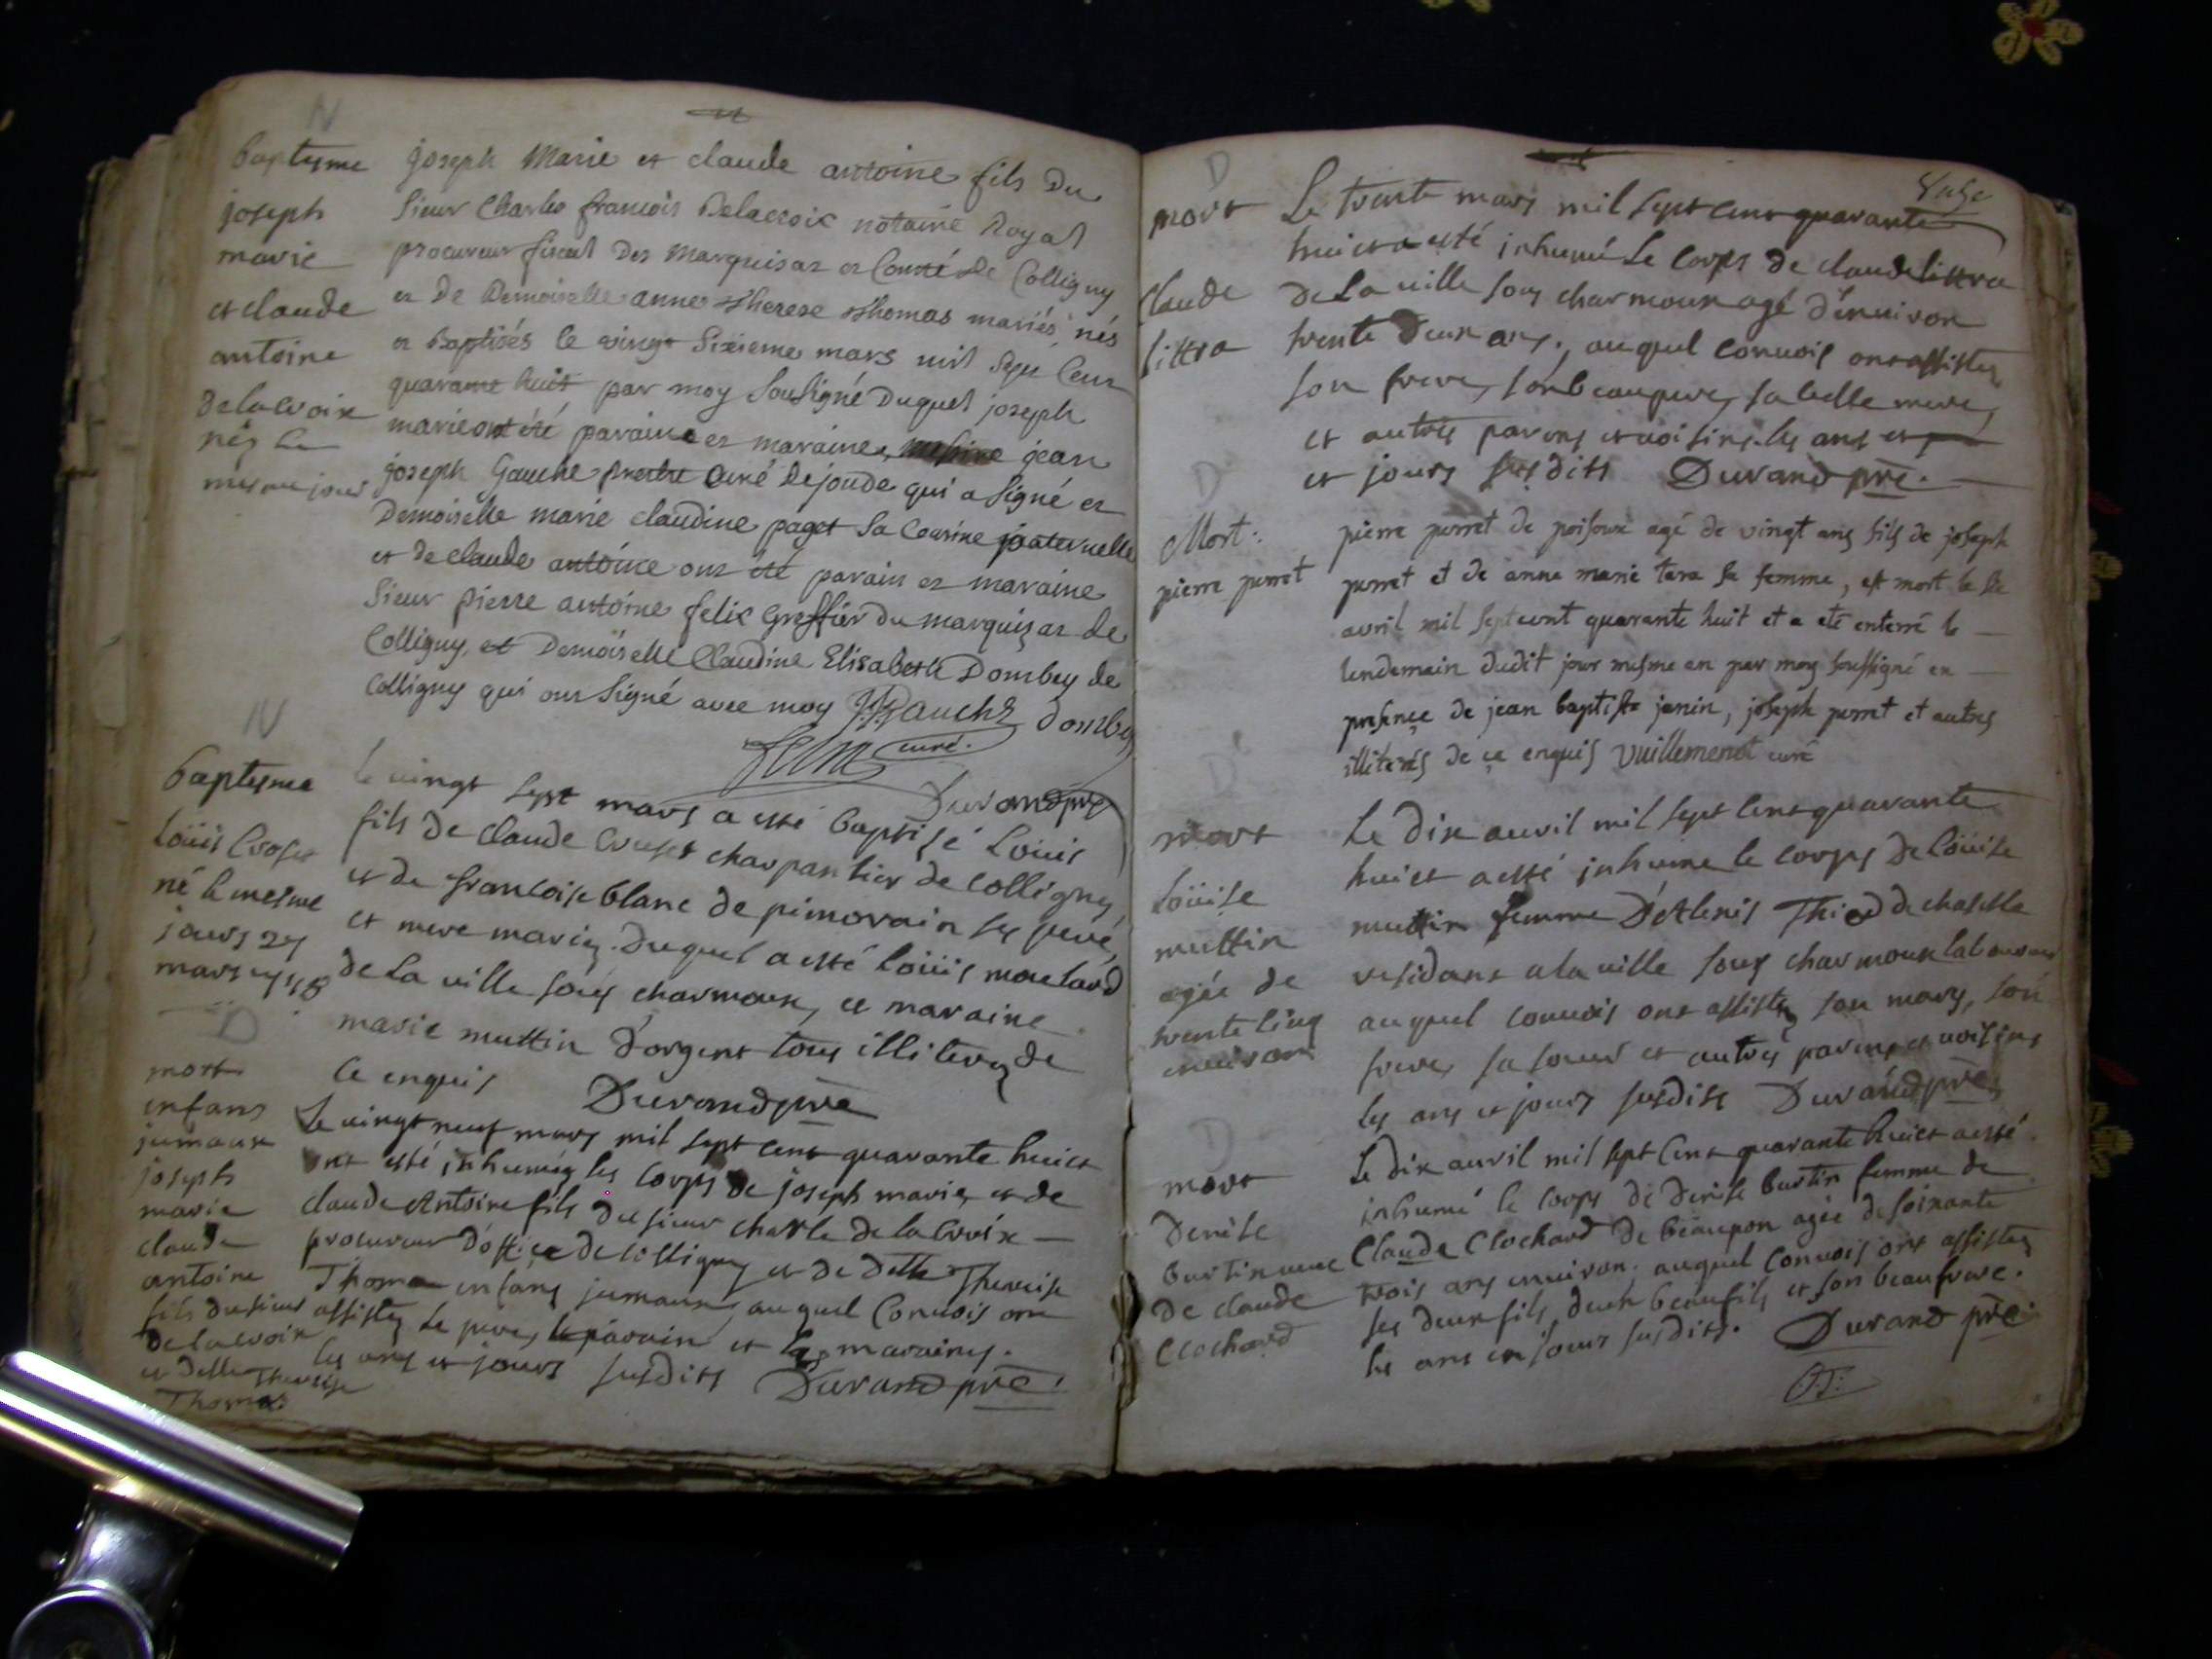 N
baptesme
joseph
marie
et claude
antoine
delacroix
nés le
mesme jour
joseph Marie et claude antoine fils Du
sieur Charles francois Delacroix notaire Royal
procureur fiscal Des Marquisaz et Comté de Colligny
et De Demoiselle anne Therese Thomas mariés, nés
et Baptisés le vingt sixieme mars mil sept Cent
quarante huit par moy sousigné Duquel joseph
marie ont été paraine et maraine, messire jean
joseph Gauche prestre Curé de joude qui a signé et
Demoiselle marie claudine paget sa Cousine paternelle
et de claude antoine ont été parain et maraine
Sieur pierre antoine felix Greffier du marquisaz de
Colligny, et Demoiselle Claudine Elisabeth Dombey de
Colligny qui ont signé avec moy JJ Gauche Dombey
curé.
Durand pre
N
baptesme
Loüis Croset
né le mesme
jours 27
mars 1748
le vingt sept mars a esté baptisé Loüis
fils de claude Cruset charpantier de colligny
et de francoise blanc de pimorain ses peré
et mere mariez. Duquel a esté Loüis moulard
de la ville sous charmoux, et maraine
marie muttin d'orgent tous illiterez de
ce enquis Durand pre
D
mort
enfans
jumaux
joseph
marie
claude
antoine
fils du sieur
delacroix
et delle Therese
Thomas
Le vingt neuf mars mil sept cent quarante huict
ont esté inhumez les corps de joseph marie, et de
claude Antoine fils du sieur charle de la croix
procureur d'office de colligny et de delle Therese
Thomas enfans jumaux, auquel Convois ont
assistez le pere, le parain et les maraines.
les ans et jours susdits Durand pre
D
mort
Claude
littra
Le trente mars mil sept cent quarante
huict a esté inhumé Le Corps de claude littra
de La ville sous charmoux agé d'enuiron
trente deux ans, auquel convois ont assistez
son frere, son beaupere, sa belle mere,
et autres parens et voisins. les ans et
et jours susdits Durand pre.
D
Mort:
pierre perret
pierre perret de poisoux agé de vingt ans fils de joseph
perret et de anne marie tera sa femme, est mort le six
avril mil septcent quarante huit et a eté enterré le
lendemain dudit jour mesme an par moy soussigné en
presence de jean baptiste janin, joseph perret et autres
illiterés de ce enquis Vuillemenot curé
D
mort
Loüise
muttin
agée de
trente cinq
enuiron
Le dix auril mil sept cent quarante
huict a esté inhumé le corps de loüise
muttin femme d'Alexis Thi de chaselle
residant a la ville sous charmoux laboureur
auquel conuois ont assistez son mary, son
frere, sa soeur et autres parens et voisins
les ans et jours susdits Durand pre
D
mort
Denise
burtin
de claude
Clochard
Le dix auril mil sept cent quarante huict a esté
inhumé le corps de denise burtin femme de
Claude Clochard de beaupon agée de soixante
trois ans enuiron. auquel Convois ont assistez
ses deux fils, deux beaufils et son beaufrere.
les ans et jours susdits. Durand pre